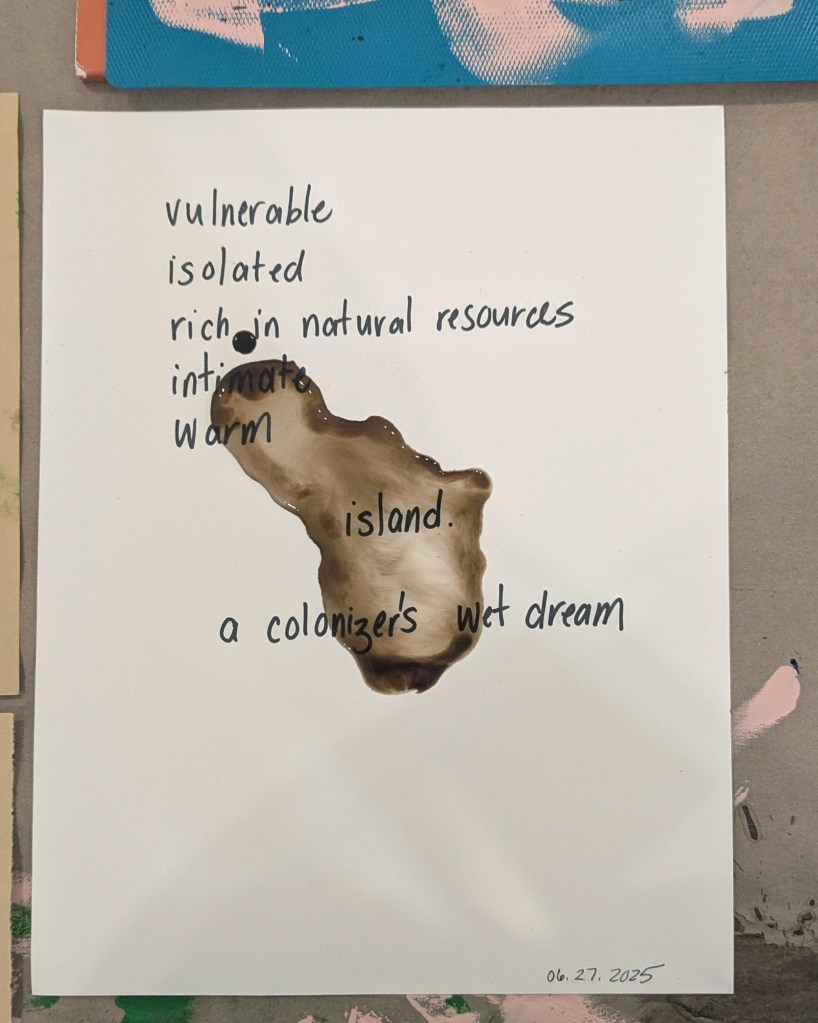 vulnerable
isolated
rich in natural resources
intimate
warm
island.
a colonizer's wet dream
06.27.2025